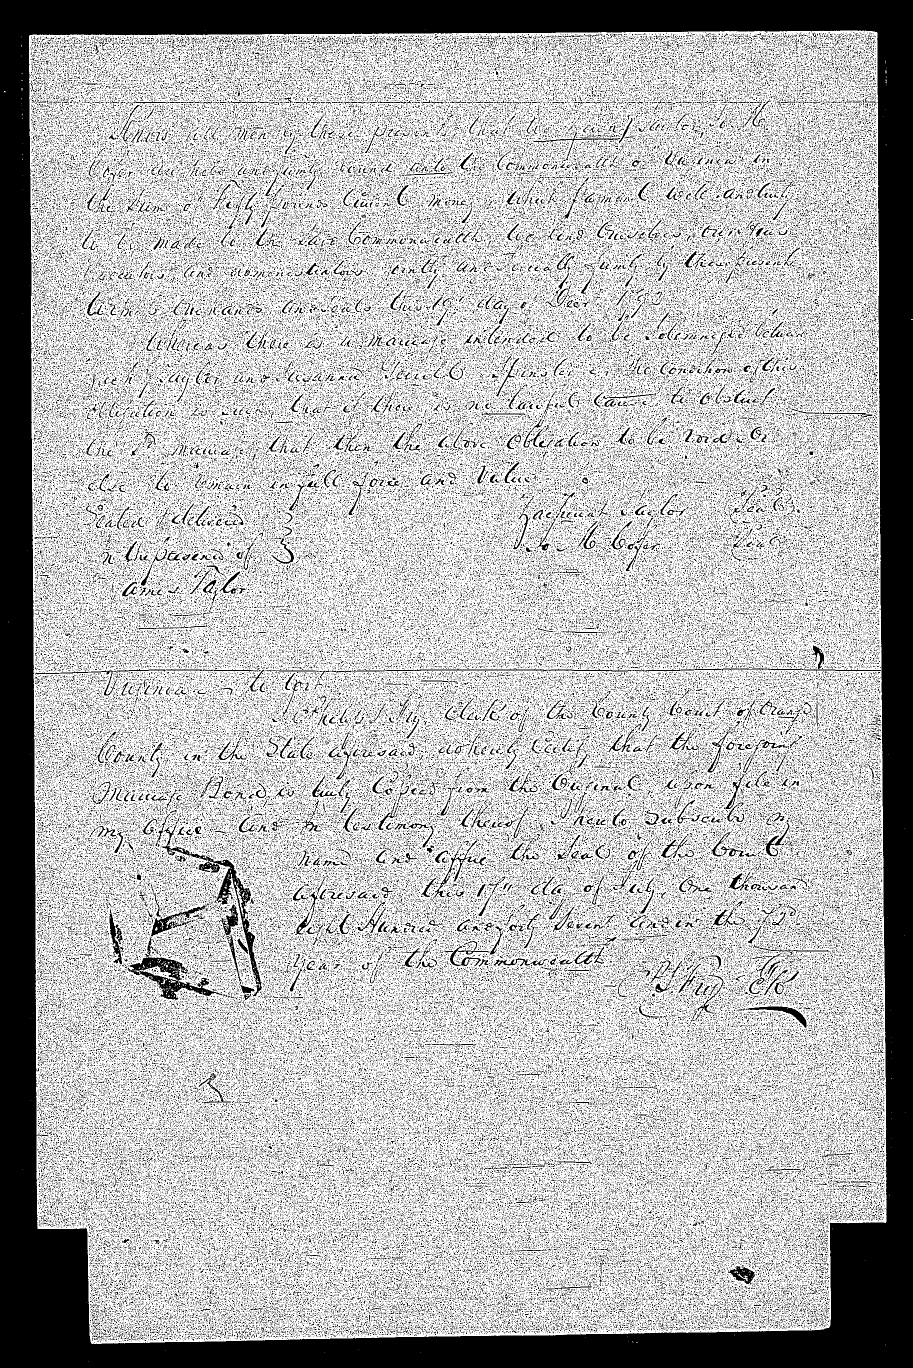 Know all men by these presents that we Zach.y Taylor, Jo. H
Cofer are held and firmly bound unto the Commonwealth of Virginia in
the sum of Fifty pounds Current money, which payment well and truly
to be made to the said Commonwealth, we bind ourselves, our heirs
Executors and administrators jointly and severally firmly by these presents
Witness our hands and seals this 19 day of Decr.
Whereas there is a marriage intended to be Solemnized between
Zach.y Taylor and Susanna Spinster the Condition of this
obligation is such, that if there is no lawful Cause to obstruct
the sd. marriage, that then the above Obligation to be void or
else to remain in full force and Value
Sealed & delivered Taylor Seal
in the presence of Jo. H Cofer Seal
James Taylor
Virginia to Wit
I Philip S Fry, Clerk of the County Court of Orange
County in the State aforesaid, do hereby Certify that the foregoing
Marriage Bond is truly Copied from the Original, upon file in
my Office - And in testimony thereof, I hereto Subscribe my
name and affix the Seal of the Court
aforesaid this 17th day of July One thousand
eight Hundred and forty Seven and in the 72d
Year of the Commonwealth
P S Fry Clk